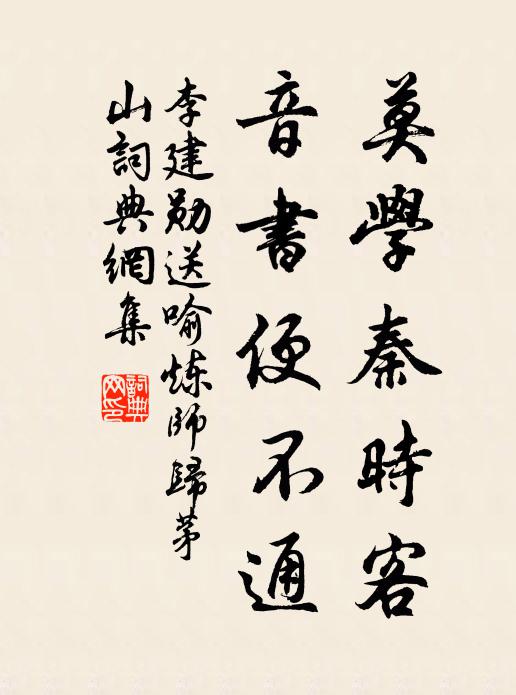 莫學秦時客
音書便不通
李建勋送喻炼師歸茅
山詞典網集
詞典
网印